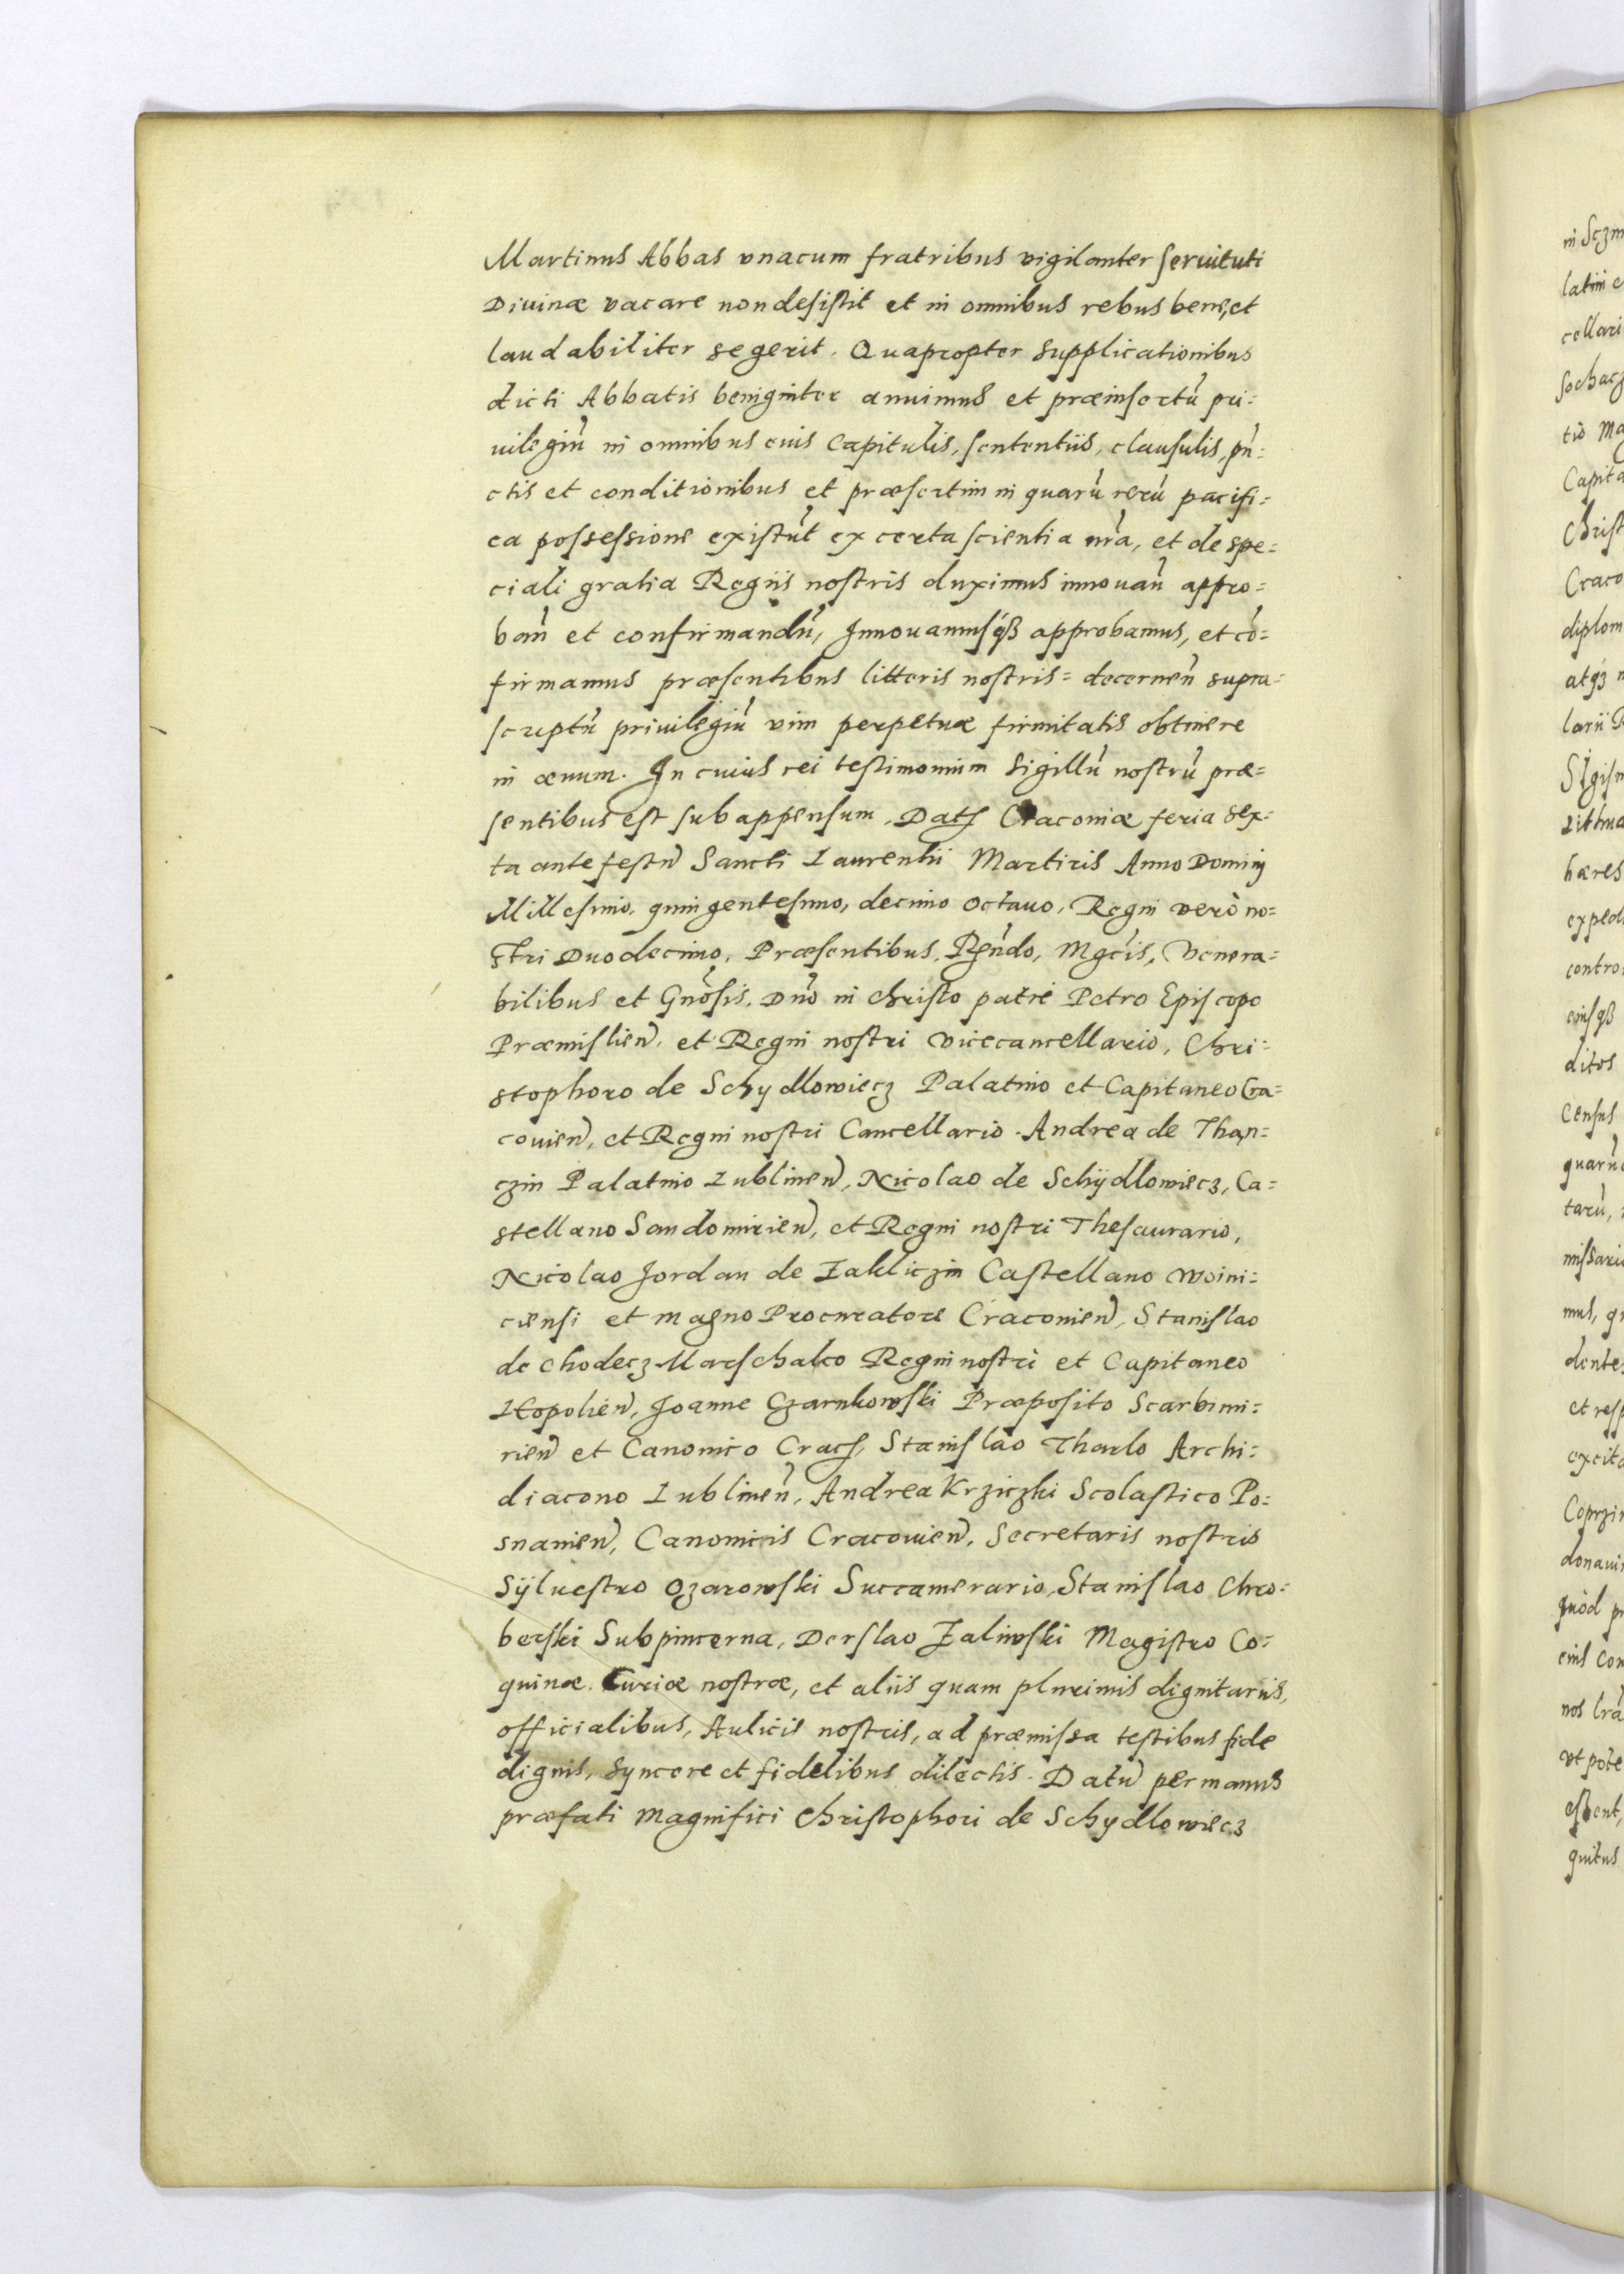 Martinus Abbas vnacum fratribus vigilanter seruituti
Diuinæ vacare non desistit et in omnibus rebus bene, et
laudabiliter se gerit. Quapropter supplicationibus
dicti Abbatis beniginter anuimus et præinsertũ pri=
uilegiũ in omnibus euis Capitulis, sententiis, clausulis, pũ=
ctis et conditionibus et præsertim in quarũ rerũ pacifi=
ca possessione existũt ex certa scientia nr̃a, et de spe=
ciali gratia Regiis nostris duximus innouan̄ appro=
ban̄ et confirmandũ, Innouamusq́ꝫ approbamus, et cõ=
firmamus præsentibus litteris nostris= decernen̄ supra=
scriptũ priuilegiũ vim perpetuæ firmitatis obtinere
in æuum. In cuius rei testimonium Sigillũ nostrũ præ=
sentibus est subappensum. Dat̃ Cracoviæ feria sex=
ta ante festũ Sancti Laurentii Martiris Anno Dominij
Millesimo, quingentesimo, decimo octauo, Regni verò no=
stri Duodecimo, Præsentibus, Rñdo, Mgcis, Venera=
bilibus et Gnõsis. Dnõ in christo patre Petro Episcopo
Præmislien̄. et Regni nostri vicecancellario, Chri=
stophoro de Schydlowiecz Palatino et Capitaneo Cra=
couien̄, et Regni nostri Cancellario. Andrea de Than=
czin Palatino Lublinen̄, Nicolao de Schÿdlowiecz, Ca=
stellano Sandomirien̄, et Regni nostri Thesaurario,
Nicolao Jordan de Zakliczin Castellano Woini=
ciensi et magno Procuratore Cracouien̄, Stanislao
de Chodecz Marschalco Regni nostri et Capitaneo
Leopolien̄, Joanne Czarnkowski Præposito Scarbimi=
rien̄ et Canonico Crac̃, Stanislao Tharlo Archi=
diacono Lublinen̄, Andrea Krziczki Scolastico Po=
snanien̄, Canonicis Cracouien̄, Secretaris nostris
Sÿluestro Ozarowski Succamerario, Stanislao Chro=
berski Subpincerna, Derslao Zaliwski Magistro Co=
quinæ. Curiæ nostræ, et aliis quam plurimis dignitariis,
officialibus, Aulicis nostris, ad præmissa testibus fide
dignis, syncere et fidelibus dilectis. Datũ per manus
præfati Magnifici Christophori de Schydlowiecz